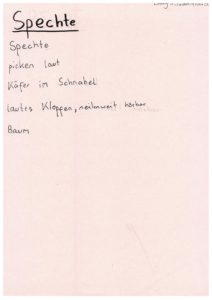 Spechte
Spechte
picken laut
Käfer im Schnabel
lautes Klopfen, meilenweit hörbar
Baum